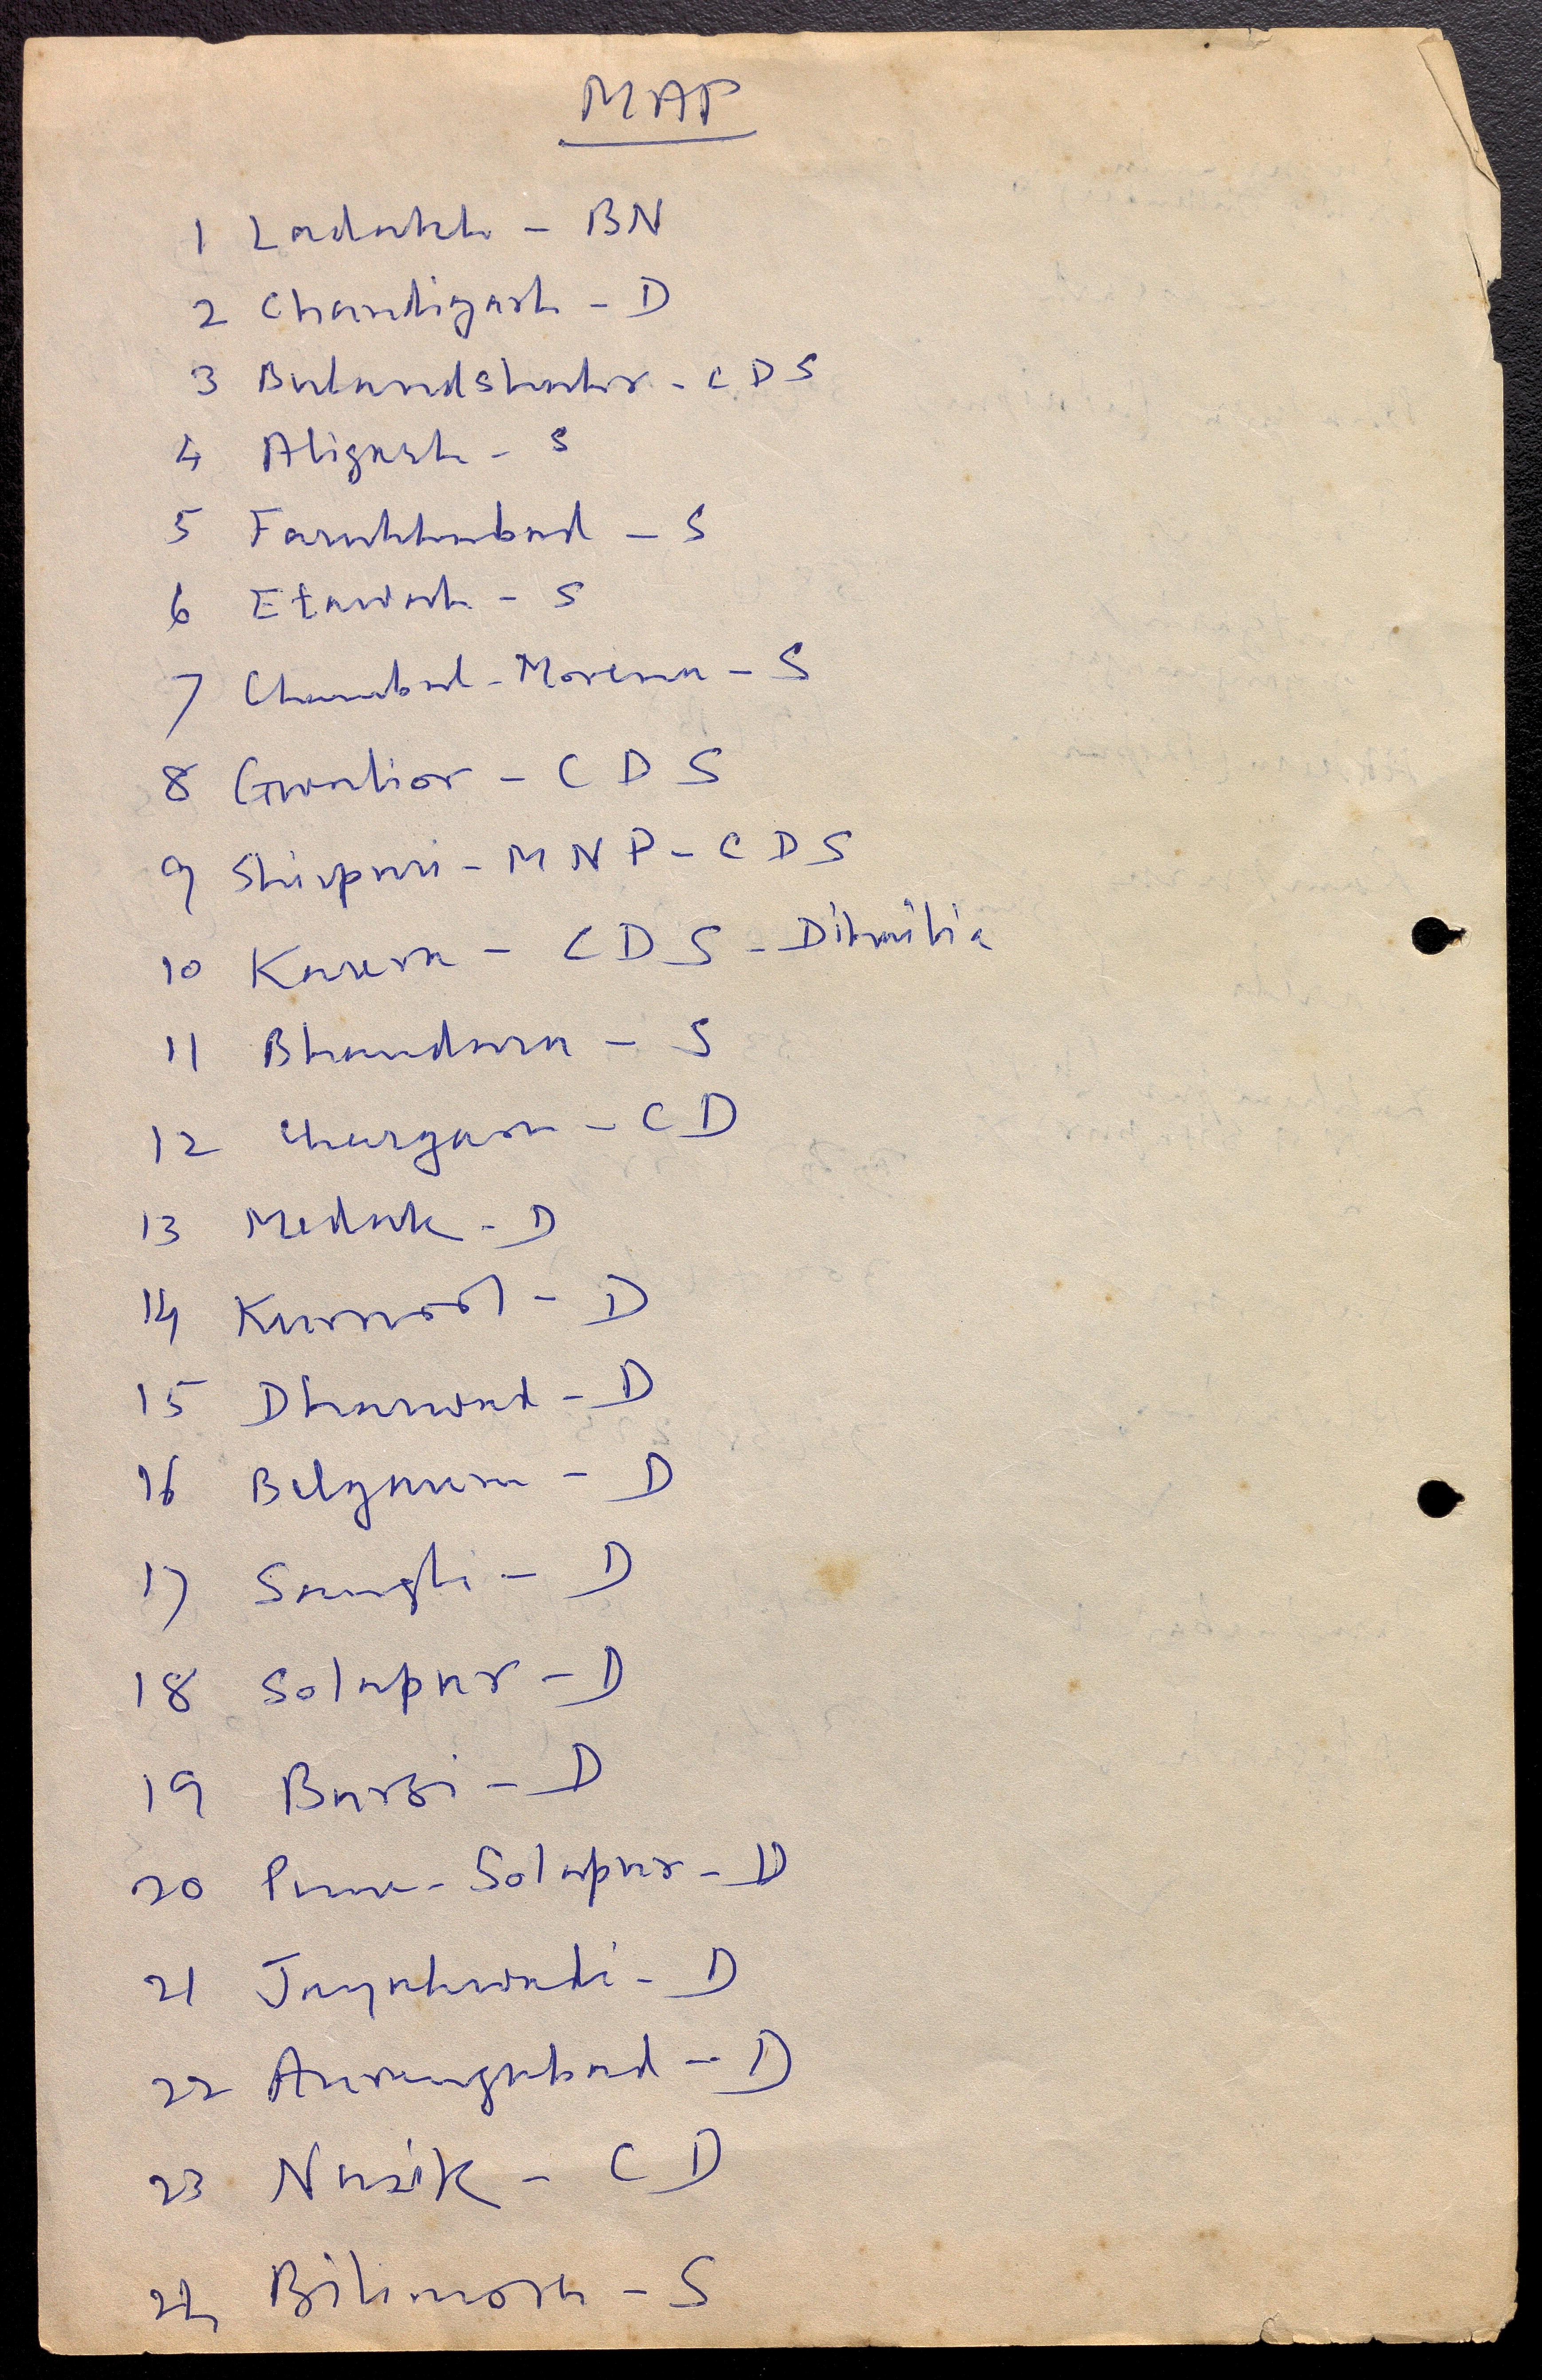 MAP
1 Ladakh - BN
2 Chandigarh - D
3 Bulandshahr - CDS
4 Aligarh - S
5 Farukhabad - S
6 Etawah - S
7 Chambal - Morena - S
8 Gwalior - C D S
9 Shivpuri - M N P - C D S
10 Karera - C D S -
11 Bhandara - S
12 - C D
13 Medak - D
14 Kurnool - D
15 Dharwad - D
16 Belgaum - D
17 Sangli - D
18 Solapur - D
19 Barsi - D
20 Pune - Solapur - D
21 Jayakwadi - D
22 Aurangabad - D
23 Nasik - C D
24 Bilimora - S